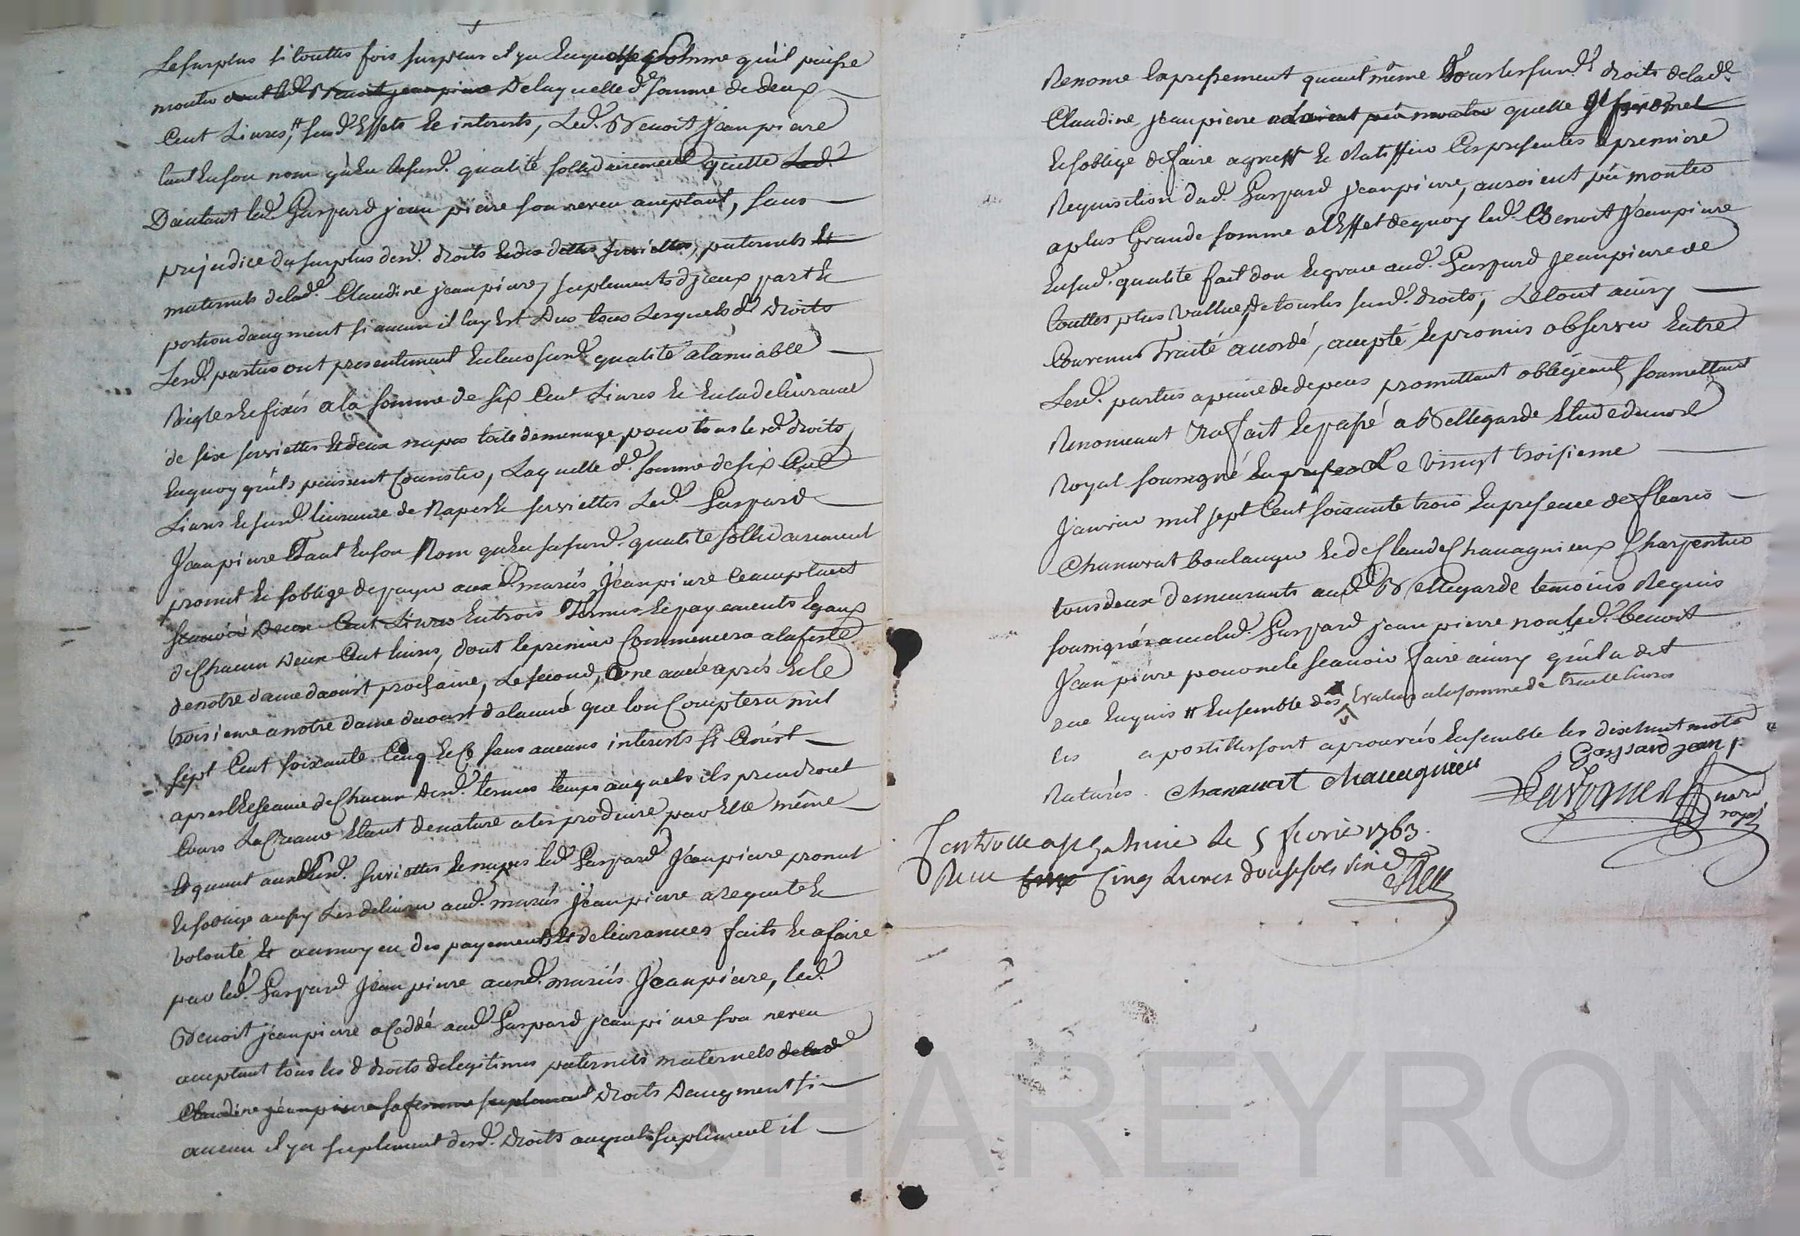 Le surplus si touttes fois surplus il y a en quelque somme qu'il puisse
monter De laquelle d.e somme de deux
Cent Livres, susd. Effets et interests, Led. Benoit Jeanpierre
tant en son nom qu'en lasusd. qualité sollidairement quitte Led.
Dautant led. Gaspard jeanpierre son neveu aceptant, sans
prejudice du surplus desd. droits paternels et
maternels delad. Claudine jeanpierre, suplements d'jceux part et
portion daugment si aucun il luy est Dus tous Lesquels d. Droits
Lesd. parties ont presentement en leur susd. qualité alamiable
Reigles et fixés a la somme de six Cent Livres et en la delivrance
de six serviettes et deux napes toile de menage pour tous lesd. droits,
en quoy qu'ils puissent Consister, Laquelle d.e somme de six Cent
Livres et susd. livraison de Napes et serviettes Led. Gaspard
Jeanpierre Tant en son Nom qu'en sa susd. qualité sollidairement
promet et s'oblige de payer aux d. mariés Jeanpierre Ceacceptants
en trois Termes et payements Egaux
de Chacun Deux Cent livres, dont le premier Commencera a la feste
de notre dame daoust prochaine, Le second, Une année après et le
troisieme a notre dame daoust de lannée que lon Comptera mil
sept Cent soixante Cinq et Ce sans aucuns interests si Cen'est
apres l'Echeance de Chacun Desd. termes temps auquels ils prendront
Cours La Creance Etant de nature a les produire par Elle même
Et quant auxd. serviettes et napes led. Gaspard Jeanpierre promet
et s'oblige aussy Les delivrer auxd. mariés jeanpierre a Requete et
volonté, Et au moyen des payements Et delivrances faits et a faire
par led. Gaspard Jeanpierre auxd. mariés Jeanpierre, led.
Benoit jeanpierre a Ceddé aud. Gaspard jeanpierre son neveu
aceptant tous les d. droits de legitimes paternels maternels delad.
Claudine jeanpierre sa femme suplement droits Daugment si
aucun il y a suplement desd. Droits auquel suplement il
Renonce Expressement quant même Tous les susd. droits delad.
Claudine jeanpierre quelle
et s'oblige de faire agreer et Ratiffier Ces presentes a premiere
Requisition dud. Gaspard jeanpierre, auroient pû monter
a plus Grande somme a l'Effet de quoy led. Benoit Jeanpierre
en susd. qualité fait don et grace aud. Gaspard Jeanpierre de
touttes plus vallue, de tous les susd. droits, Le tout ainsy
Convenu Traité accordé, accepté et promis observer Entre
Lesd. parties a peine de depens promettant obligéant, soumettant
Renonceant fait et passé a Bellegarde Etude du no.re
Royal soussigné Le vingt troisieme
Janvier mil sept Cent soixante trois En presence de fleuris
Chanavat boulanger et de Claude Chavagnieux Charpentier
tous deux demeurants aud. Bellegarde temoins Requis
soussignés avec led. Gaspard jeanpierre non led. benoit
Jeanpierre pour ne le scavoir faire ainsy qu'il a dit
due Enquis Ensemble des Evalués a la somme de trente livres
les apostilles sont aprouvés Ensemble les dixhuit mots
Raturés. Chanavat Chavagnieux
Gaspard jean p.
no.re
royal
Controllé a le 5 fevrie 1763.
Recu Cinq Livres douse sols